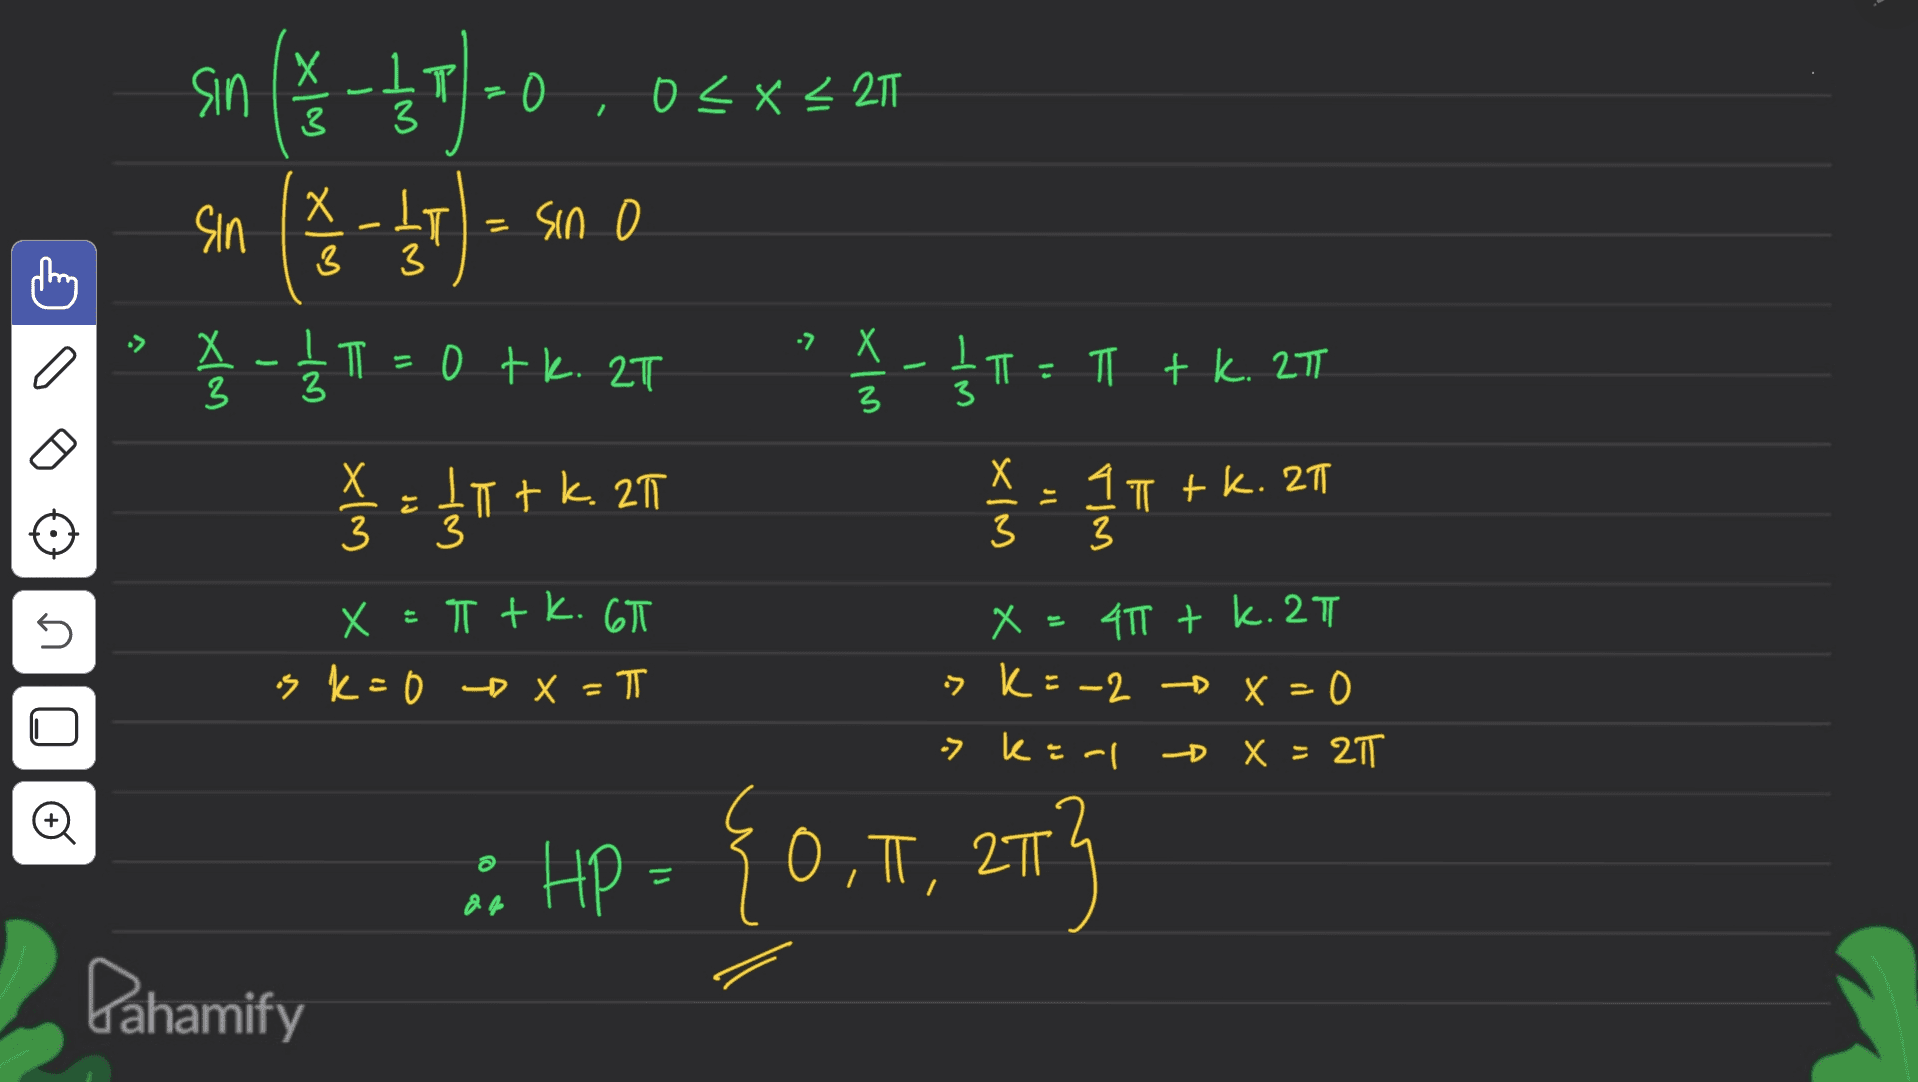 sin (x/3 - 1/3 π) = 0 , 0 ≤ x ≤ 2π
sin (x/3 - 1/3 π) = sin 0
•> x/3 - 1/3 π = 0 + k. 2π
x/3 = 1/3 π + k. 2π
x = π + k. 6π
•> k = 0 → x = π
•> x/3 - 1/3 π = π + k. 2π
x/3 = 4/3 π + k. 2π
x = 4π + k. 2π
•> k = -2 → x = 0
•> k = -1 → x = 2π
∴ HP = {0, π, 2π}
Pahamify